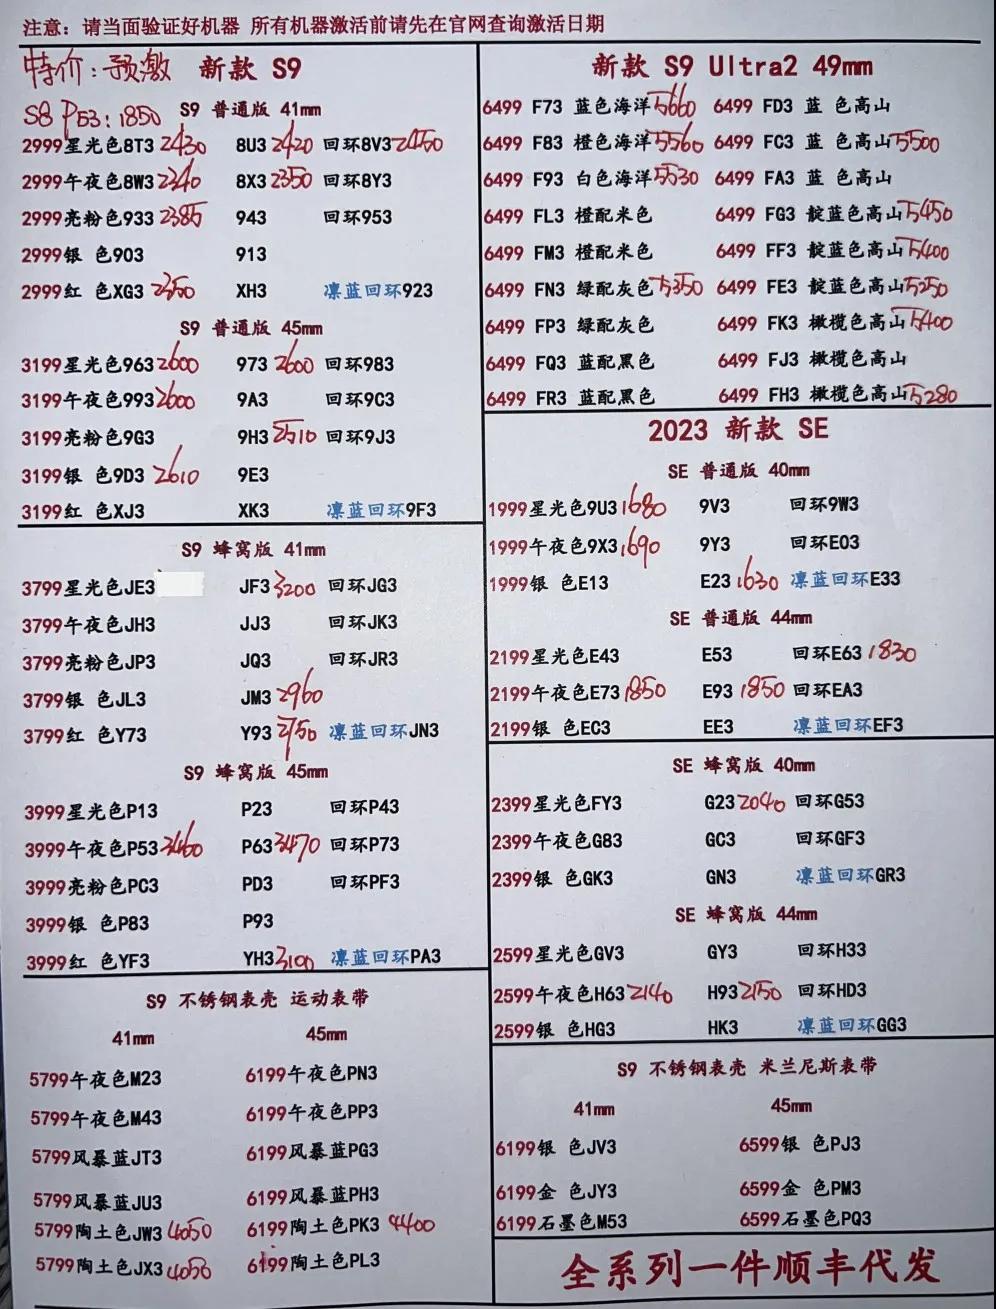 注意: 请当面验证好机器 所有机器激活前请先在官网查询激活日期
特价:预激 新款 S9
S8 P53:1850 S9 普通版 41mm
2999星光色8T3 2430 8U3 2420 回环8V3 2450
2999午夜色8W3 2340 8X3 2350 回环8Y3
2999亮粉色933 2385 943 回环953
2999银 色903 913
2999红 色XG3 2350 XH3 凛蓝回环923
S9 普通版 45mm
3199星光色963 2600 973 2600 回环983
3199午夜色993 2600 9A3 回环9C3
3199亮粉色9G3 9H3 2510 回环9J3
3199银 色9D3 2610 9E3
3199红 色XJ3 XK3 凛蓝回环9F3
S9 蜂窝版 41mm
3799星光色JE3 JF3 3200 回环JG3
3799午夜色JH3 JJ3 回环JK3
3799亮粉色JP3 JQ3 回环JR3
3799银 色JL3 JM3 2960
3799红 色Y73 Y93 2750 凛蓝回环JN3
S9 蜂窝版 45mm
3999星光色P13 P23 回环P43
3999午夜色P53 3460 P63 3470 回环P73
3999亮粉色PC3 PD3 回环PF3
3999银 色P83 P93
3999红 色YF3 YH3 3100 凛蓝回环PA3
S9 不锈钢表壳 运动表带
41mm 45mm
5799午夜色M23 6199午夜色PN3
5799午夜色M43 6199午夜色PP3
5799风暴蓝JT3 6199风暴蓝PG3
5799风暴蓝JU3 6199风暴蓝PH3
5799陶土色JW3 4050 6199陶土色PK3 4400
5799陶土色JX3 4050 6199陶土色PL3
新款 S9 Ultra2 49mm
6499 F73 蓝色海洋5660 6499 FD3 蓝 色高山
6499 F83 橙色海洋5560 6499 FC3 蓝 色高山5500
6499 F93 白色海洋5530 6499 FA3 蓝 色高山
6499 FL3 橙配米色 6499 FG3 靛蓝色高山5450
6499 FM3 橙配米色 6499 FF3 靛蓝色高山5400
6499 FN3 绿配灰色5350 6499 FE3 靛蓝色高山5250
6499 FP3 绿配灰色 6499 FK3 橄榄色高山5400
6499 FQ3 蓝配黑色 6499 FJ3 橄榄色高山
6499 FR3 蓝配黑色 6499 FH3 橄榄色高山5280
2023 新款 SE
SE 普通版 40mm
1999星光色9U3 1680 9V3 回环9W3
1999午夜色9X3 1690 9Y3 回环E03
1999银 色E13 E23 1630 凛蓝回环E33
SE 普通版 44mm
2199星光色E43 E53 回环E63 1830
2199午夜色E73 1850 E93 1850 回环EA3
2199银 色EC3 EE3 凛蓝回环EF3
SE 蜂窝版 40mm
2399星光色FY3 G23 2040 回环G53
2399午夜色G83 GC3 回环GF3
2399银 色GK3 GN3 凛蓝回环GR3
SE 蜂窝版 44mm
2599星光色GV3 GY3 回环H33
2599午夜色H63 2140 H93 2150 回环HD3
2599银 色HG3 HK3 凛蓝回环GG3
S9 不锈钢表壳 米兰尼斯表带
41mm 45mm
6199银 色JV3 6599银 色PJ3
6199金 色JY3 6599金 色PM3
6199石墨色M53 6599石墨色PQ3
全系列一件顺丰代发